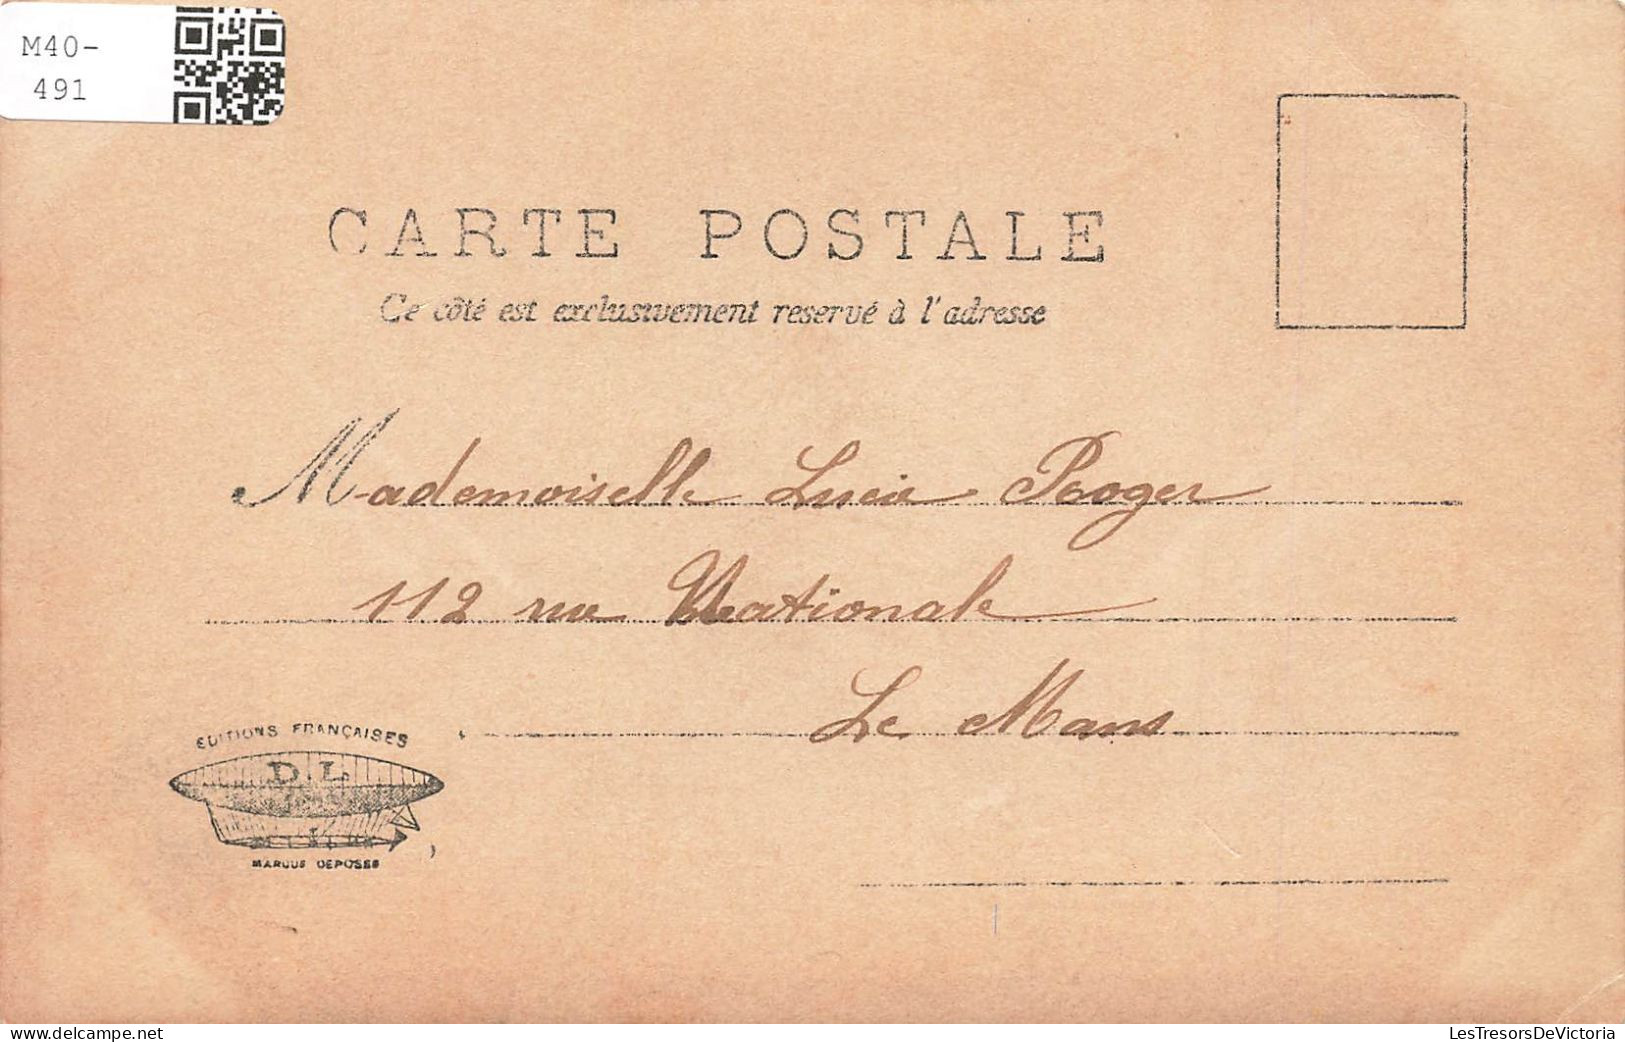 M40-
491
CARTE POSTALE
Ce côté est exclusivement reservé à l'adresse
Mademoiselle Lucie Roger
112 rue Nationale
Le Mans
EDITIONS FRANÇAISES
D.L
MARQUE DEPOSEE
LesTresorsDeVictoria